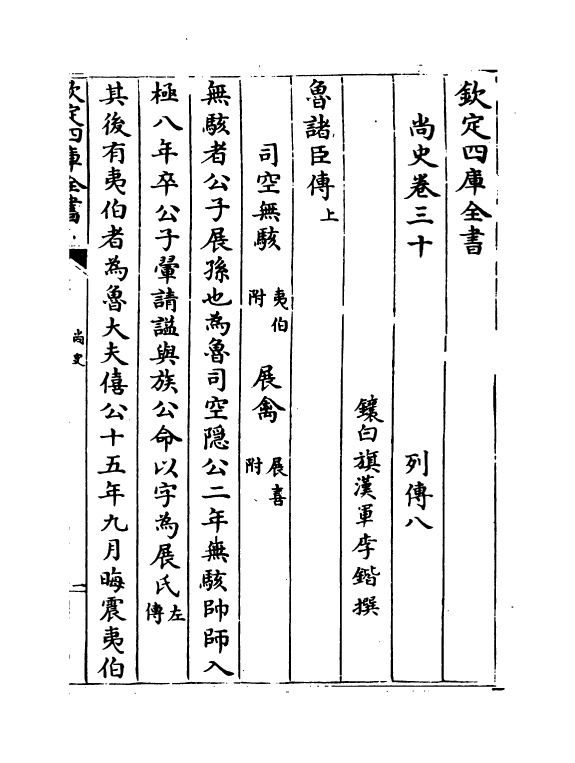 欽定四庫全書
尚史卷三十 列傳八
鑲白旗漢軍李鍇撰
魯諸臣傳上
司空無駭 夷伯附 展禽 展喜附
無駭者公子展孫也為魯司空隱公二年無駭帥師入
極八年卒公子翬請謚與族公命以字為展氏左傳
其後有夷伯者為魯大夫僖公十五年九月晦震夷伯
欽定四庫全書
尚史
一